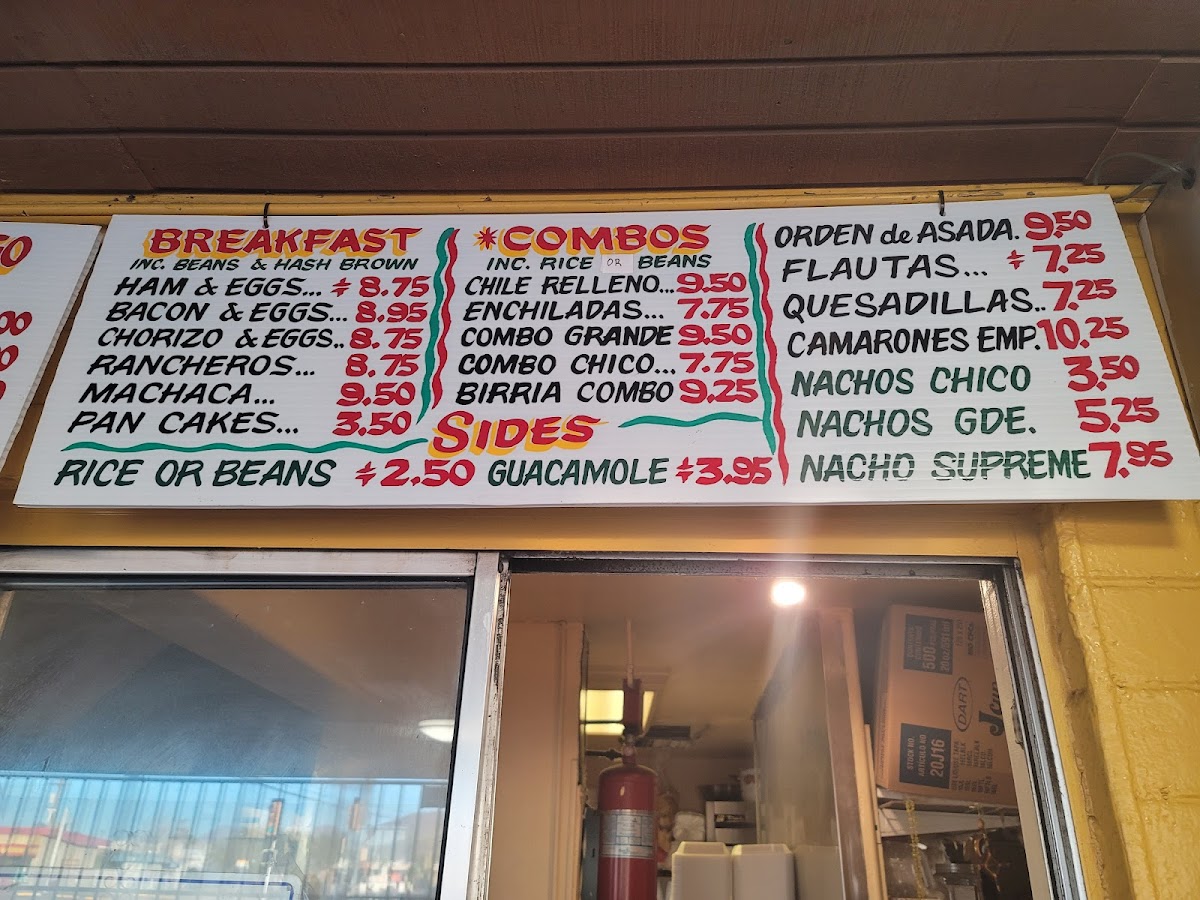 BREAKFAST
INC. BEANS & HASH BROWN
HAM & EGGS... $ 8.75
BACON & EGGS... 8.95
CHORIZO & EGGS.. 8.75
RANCHEROS... 8.75
MACHACA... 9.50
PAN CAKES... 3.50
*COMBOS
INC. RICE OR BEANS
CHILE RELLENO... 9.50
ENCHILADAS... 7.75
COMBO GRANDE 9.50
COMBO CHICO... 7.75
BIRRIA COMBO 9.25
SIDES
RICE OR BEANS $2.50 GUACAMOLE $3.95
ORDEN de ASADA. 9.50
FLAUTAS... $ 7.25
QUESADILLAS.. 7.25
CAMARONES EMP. 10.25
NACHOS CHICO 3.50
NACHOS GDE. 5.25
NACHO SUPREME 7.95
500
20J16
STOCK NO.
ARTICULO NO.
DART